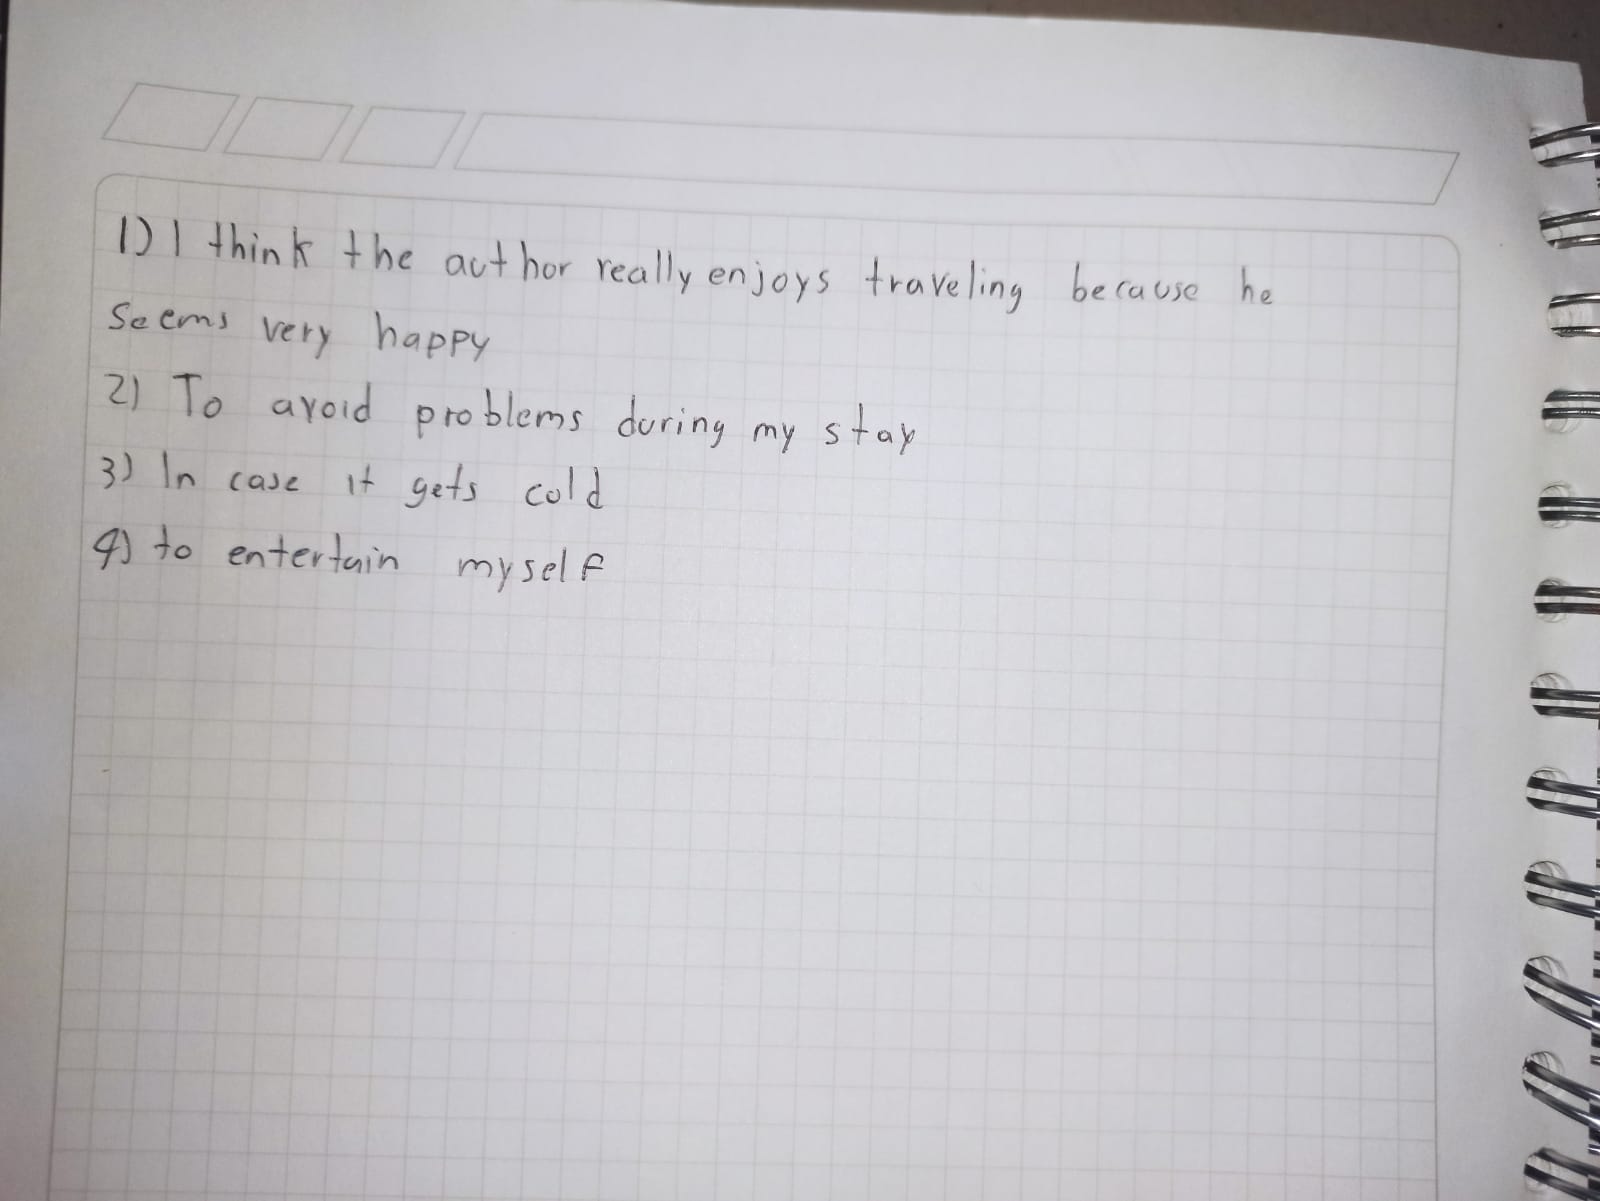 1) I think the author really enjoys traveling because he
seems very happy
2) To avoid problems during my stay
3) In case it gets cold
4) to entertain myself